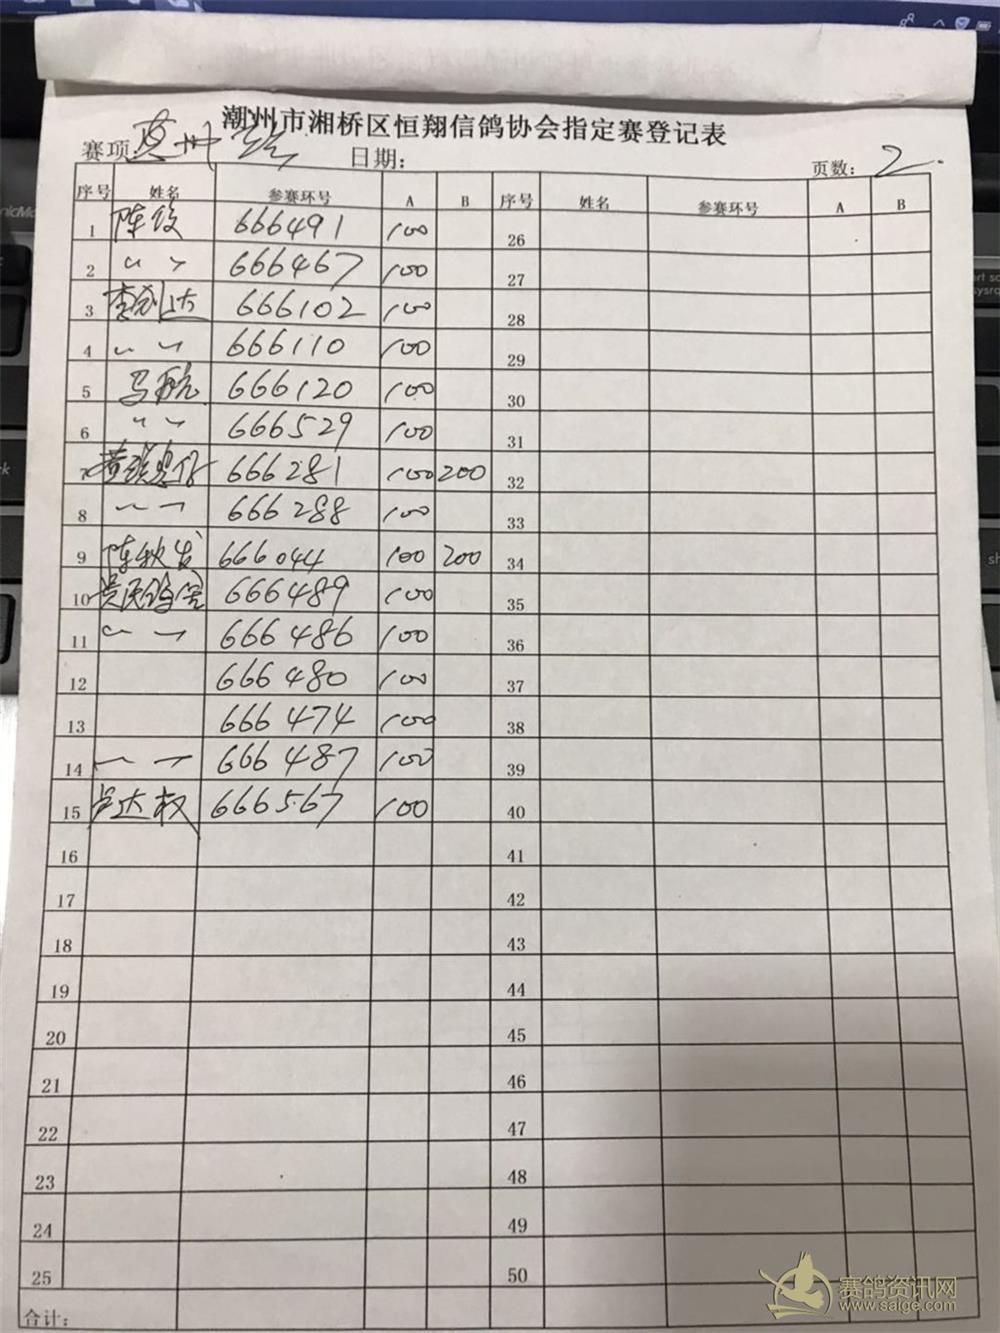 潮州市湘桥区恒翔信鸽协会指定赛登记表
赛项 日期: 页数: 2
序号 姓名 参赛环号 A B 序号 姓名 参赛环号 A B
1 陈 666491 100 26
2 〃 666467 100 27
3 李 达 666102 100 28
4 〃 666110 100 29
5 马航 666120 100 30
6 〃 666529 100 31
7 黄 666281 100 200 32
8 〃 666288 100 33
9 陈秋发 666044 100 200 34
10 吴 666489 100 35
11 〃 666486 100 36
12 666480 100 37
13 666474 100 38
14 〃 666487 100 39
15 卢达权 666567 100 40
16 41
17 42
18 43
19 44
20 45
21 46
22 47
23 48
24 49
25 50
合计:
赛鸽资讯网
www.saige.com